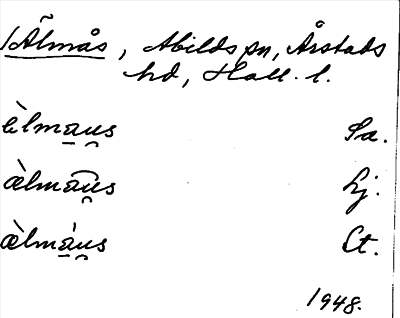 /Älmås, Abilds sn, Årstads
hd, Hall. l.
èlmau̯s Sa.
æ̀lmau̯s Lj.
æ̀lmáu̯s Ct.
1948.